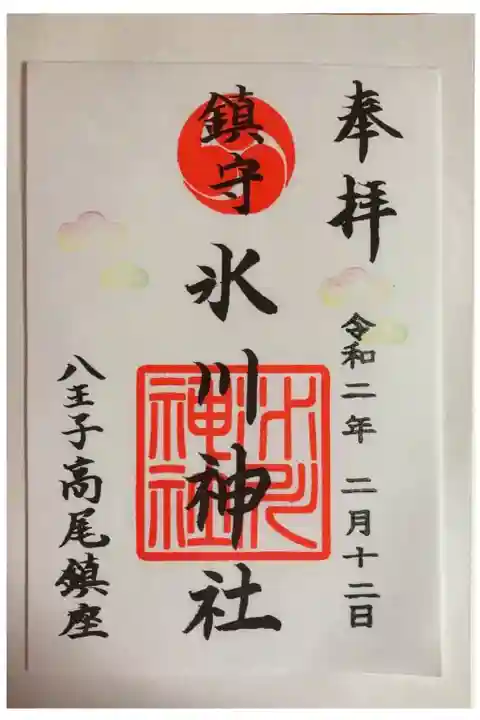 奉拝
令和二年 二月十二日
鎮守
氷川神社
氷川
神社
八王子高尾鎮座